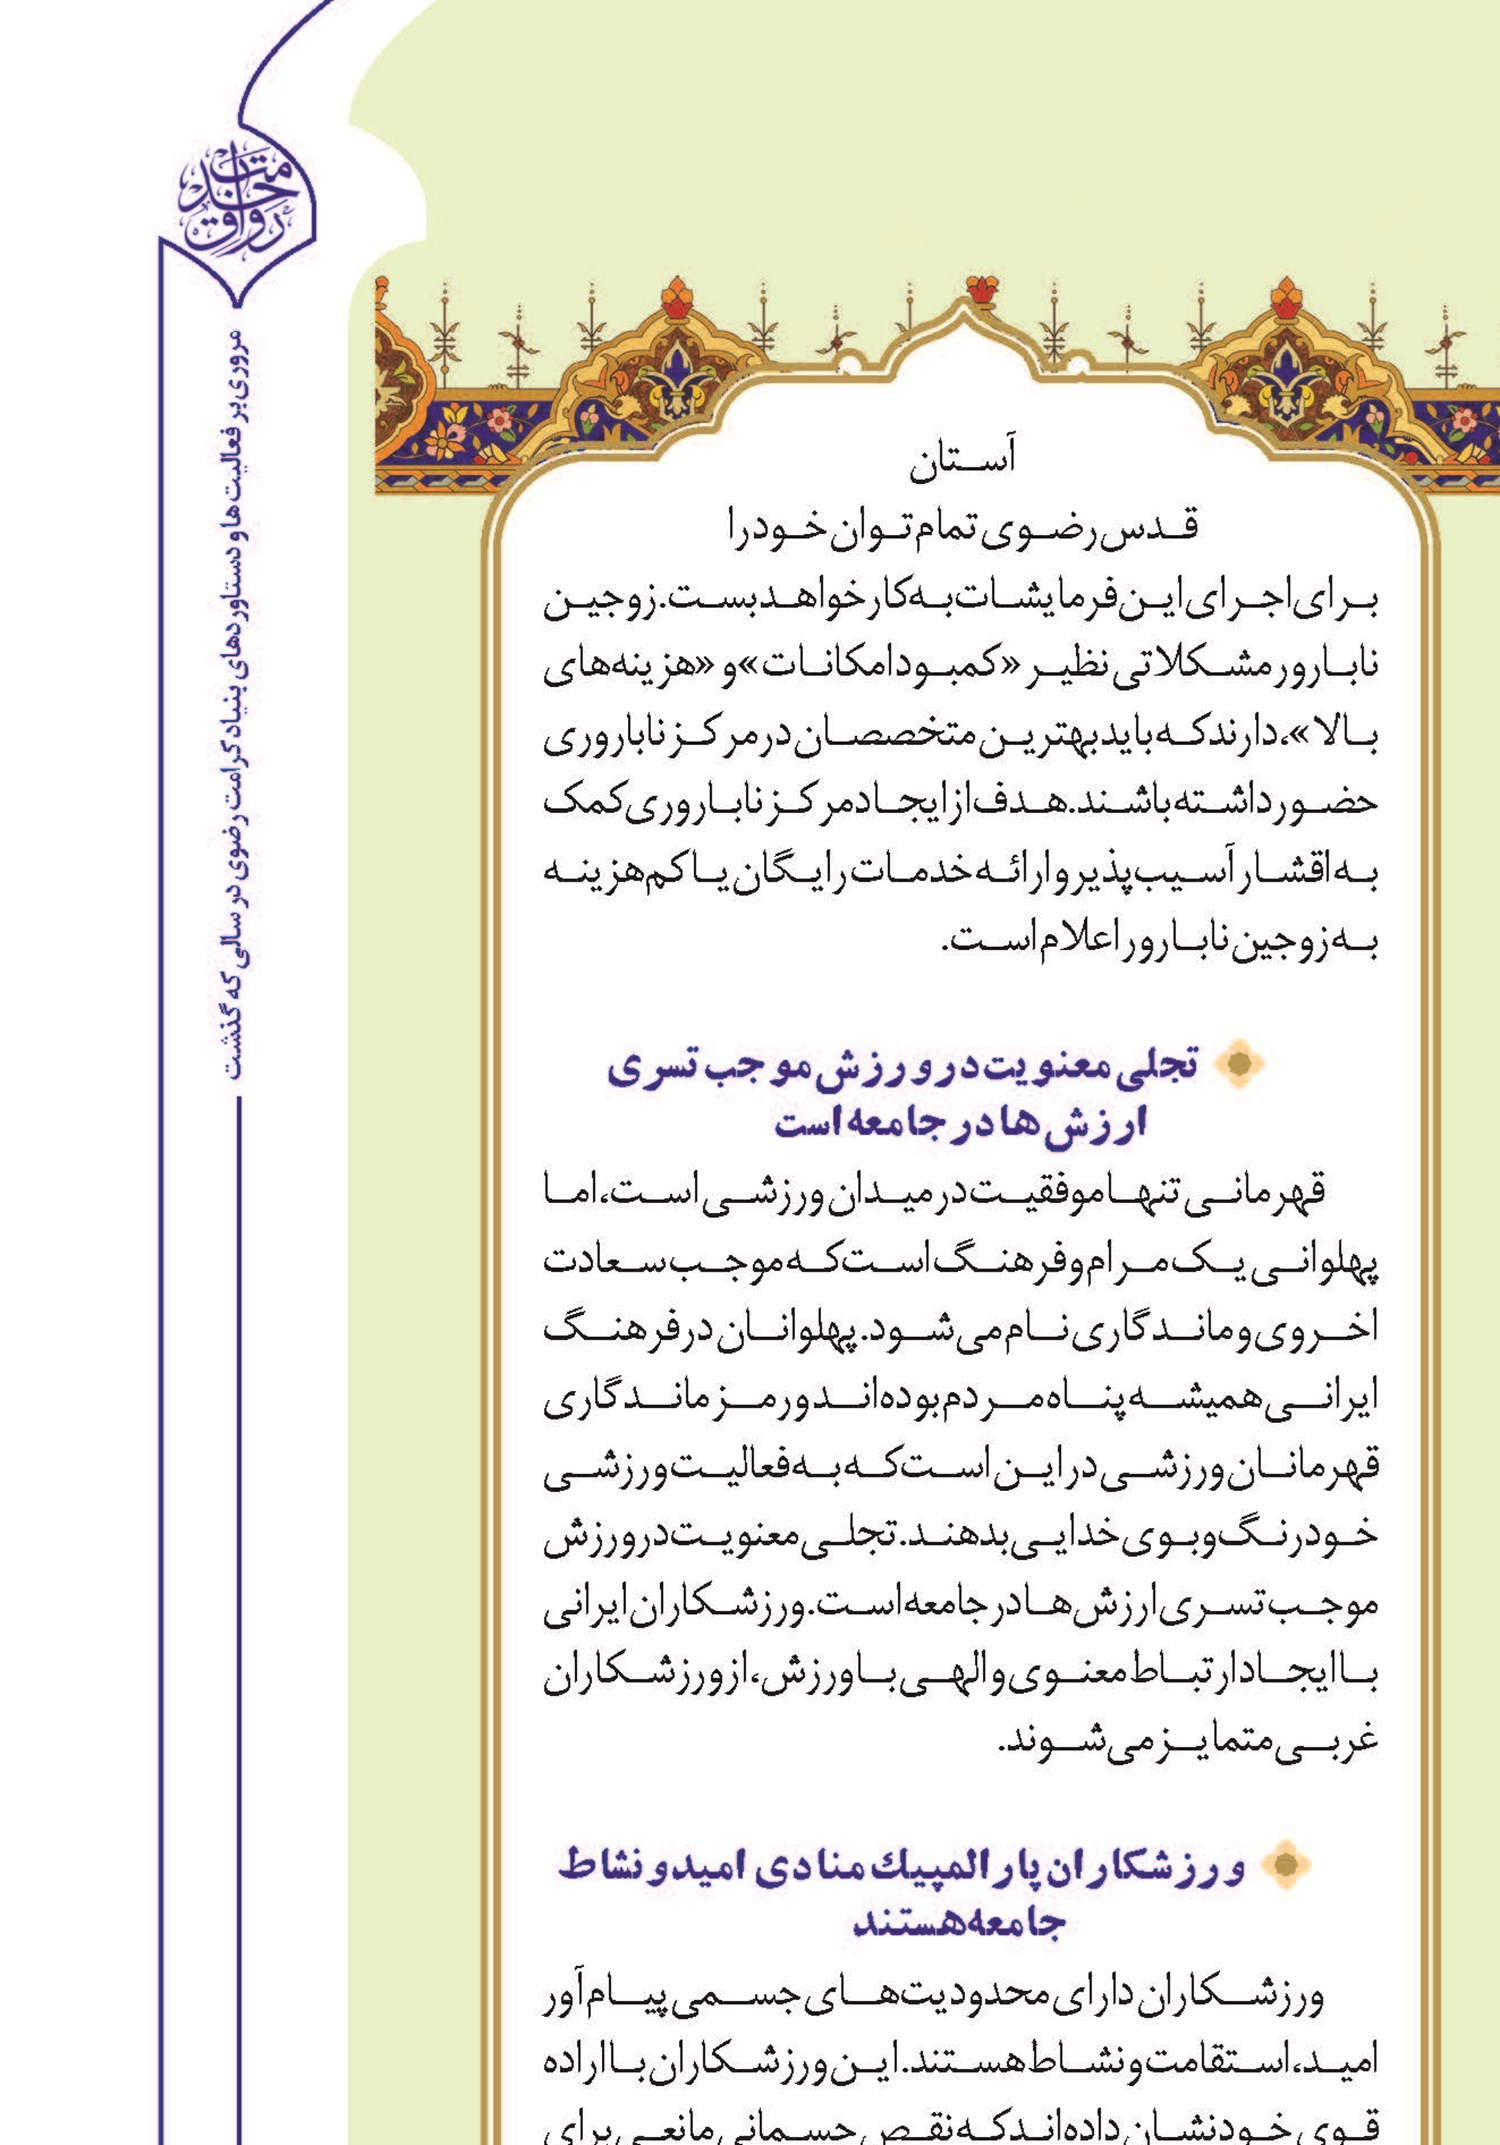 رواق خدمت
مروری بر فعالیت‌ها و دستاوردهای بنیاد کرامت رضوی در سالی که گذشت
آستان
قدس رضوی تمام توان خود را
برای اجرای این فرمایشات به کار خواهد بست. زوجین
نابارور مشکلاتی نظیر «کمبود امکانات» و «هزینه‌های
بالا»، دارند که باید بهترین متخصصان در مرکز ناباروری
حضور داشته باشند. هدف از ایجاد مرکز ناباروری کمک
به اقشار آسیب‌پذیر و ارائه خدمات رایگان یا کم‌هزینه
به زوجین نابارور اعلام است.
تجلی معنویت در ورزش موجب تسری
ارزش‌ها در جامعه است
قهرمانی تنها موفقیت در میدان ورزشی است، اما
پهلوانی یک مرام و فرهنگ است که موجب سعادت
اخروی و ماندگاری نام می‌شود. پهلوانان در فرهنگ
ایرانی همیشه پناه مردم بوده‌اند و رمز ماندگاری
قهرمانان ورزشی در این است که به فعالیت ورزشی
خود رنگ و بوی خدایی بدهند. تجلی معنویت در ورزش
موجب تسری ارزش‌ها در جامعه است. ورزشکاران ایرانی
با ایجاد ارتباط معنوی و الهی با ورزش، از ورزشکاران
غربی متمایز می‌شوند.
ورزشکاران پارالمپیك منادی امید و نشاط
جامعه هستند
ورزشکاران دارای محدودیت‌های جسمی پیام‌آور
امید، استقامت و نشاط هستند. این ورزشکاران با اراده
قوی خود نشان داده‌اند که نقص جسمانی مانعی برای